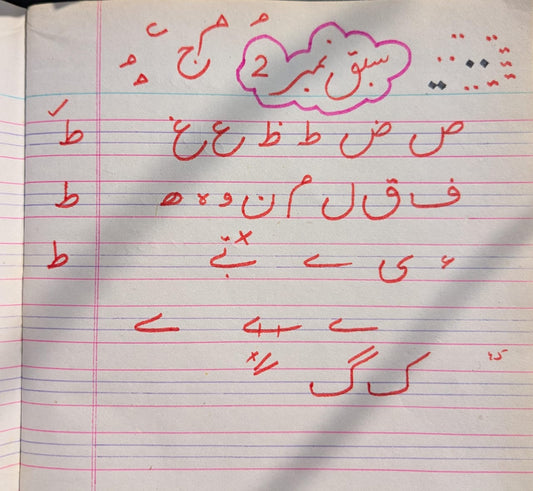 سبق نمبر 2
ج م
ص ض ط ظ ع غ ط
ف ق ل م ن و ہ ھ ط
ء ی ے ط
ے ے
ک گ